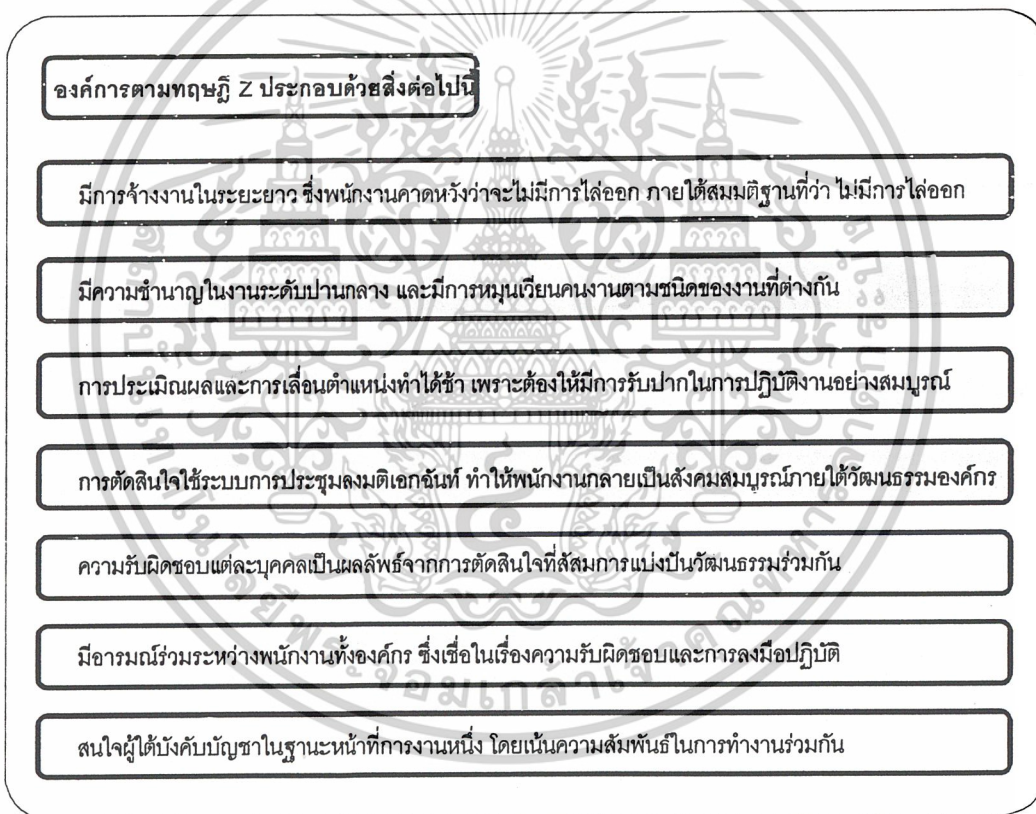 องค์การตามทฤษฎี Z ประกอบด้วยสิ่งต่อไปนี้
มีการจ้างงานในระยะยาว ซึ่งพนักงานคาดหวังว่าจะไม่มีการไล่ออก ภายใต้สมมติฐานที่ว่า ไม่มีการไล่ออก
มีความชำนาญในงานระดับปานกลาง และมีการหมุนเวียนคนงานตามชนิดของงานที่ต่างกัน
การประเมิณผลและการเลื่อนตำแหน่งทำได้ช้า เพราะต้องให้มีการรับปากในการปฏิบัติงานอย่างสมบูรณ์
การตัดสินใจใช้ระบบการประชุมลงมติเอกฉันท์ ทำให้พนักงานกลายเป็นสังคมสมบูรณ์ภายใต้วัฒนธรรมองค์กร
ความรับผิดชอบแต่ละบุคคลเป็นผลลัพธ์จากการตัดสินใจที่สัสมการแบ่งปันวัฒนธรรมร่วมกัน
มีอารมณ์ร่วมระหว่างพนักงานทั้งองค์กร ซึ่งเชื่อในเรื่องความรับผิดชอบและการลงมือปฏิบัติ
สนใจผู้ใต้บังคับบัญชาในฐานะหน้าที่การงานหนึ่ง โดยเน้นความสัมพันธ์ในการทำงานร่วมกัน